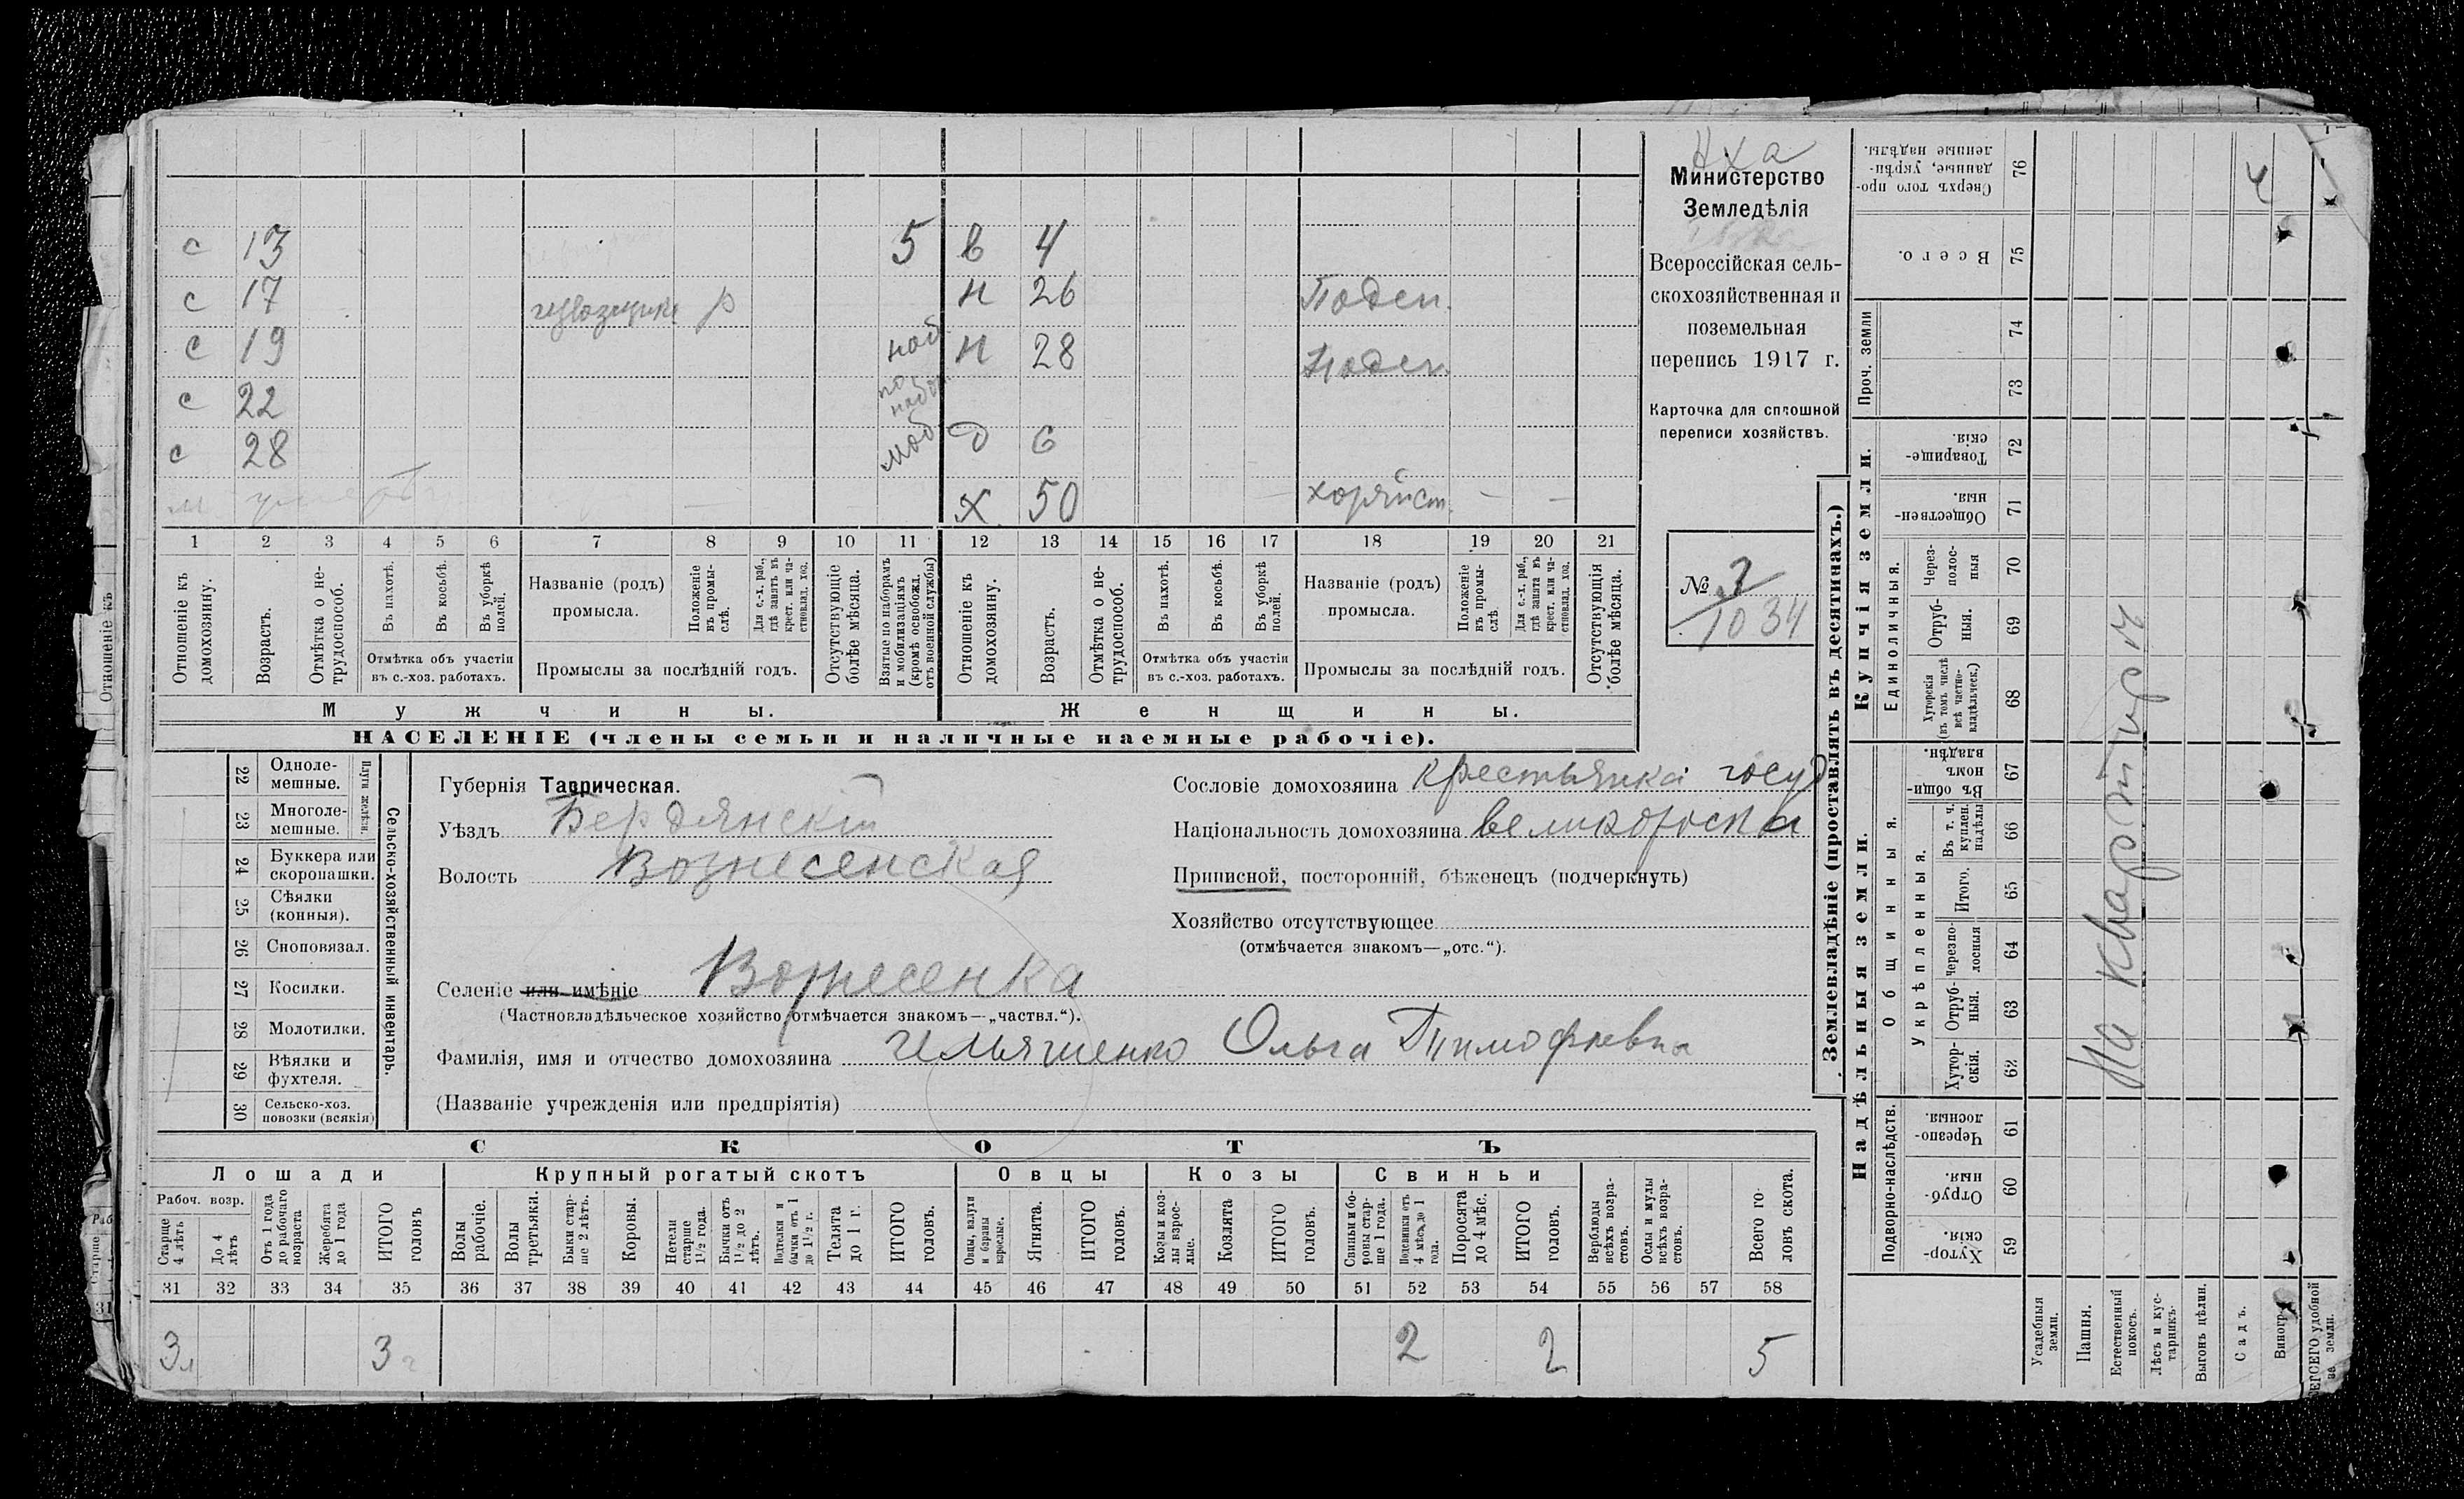 с 13 5 в 4
с 17 извозщик р н 26 Поден.
с 19 наб н 28 Поден.
с 22
с 28 моб д 6
м х 50 хозяйст.
1 2 3 4 5 6 7 8 9 10 11 12 13 14 15 16 17 18 19 20 21
Отношеніе къ домохозяину.
Возрастъ.
Отмѣтка о нетрудоспособ.
Въ пахотѣ.
Въ косьбѣ.
Въ уборкѣ полей.
Отмѣтка объ участіи
въ с.-хоз. работахъ.
Названіе (родъ)
промысла.
Положеніе въ промыслѣ.
Для с.-х. раб., гдѣ занятъ въ крест. или частновлад. хоз.
Промыслы за послѣдній годъ.
Отсутствующіе болѣе мѣсяца.
Взятые по наборамъ и мобилизаціямъ (кромѣ освобожд. отъ военной службы)
Отношеніе къ домохозяину.
Возрастъ.
Отмѣтка о нетрудоспособ.
Въ пахотѣ.
Въ косьбѣ.
Въ уборкѣ полей.
Отмѣтка объ участіи
въ с.-хоз. работахъ.
Названіе (родъ)
промысла.
Положеніе въ промыслѣ.
Для с.-х. раб., гдѣ занята въ крест. или частновлад. хоз.
Промыслы за послѣдній годъ.
Отсутствующія болѣе мѣсяца.
Мужчины. Женщины.
НАСЕЛЕНІЕ (члены семьи и наличные наемные рабочіе).
Министерство
Земледѣлія
Всероссійская сель-
скохозяйственная и
поземельная
перепись 1917 г.
Карточка для сплошной
переписи хозяйствъ.
№ 3
1034
22 Одноле-
мешные.
23 Многоле-
мешные.
Плуги желѣзн.
24 Буккера или
скоропашки.
25 Сѣялки
(конныя).
26 Сноповязал.
27 Косилки.
28 Молотилки.
29 Вѣялки и
фухтеля.
30 Сельско-хоз.
повозки (всякія)
Сельско-хозяйственный инвентарь.
Губернія Таврическая.
Уѣздъ Бердянскій
Волость Вознесенская
Селеніе или имѣніе Вознесенка
(Частновладѣльческое хозяйство отмѣчается знакомъ—„частвл.“).
Фамилія, имя и отчество домохозяина Ильяшенко Ольга Тимофѣевна
(Названіе учрежденія или предпріятія)
Сословіе домохозяина крестьянка госуд
Національность домохозяина великоросска
Приписной, посторонній, бѣженецъ (подчеркнуть)
Хозяйство отсутствующее
(отмѣчается знакомъ—„отс.“).
СКОТЪ
Лошади Крупный рогатый скотъ Овцы Козы Свиньи
Рабоч. возр.
Старше 4 лѣтъ
До 4 лѣтъ
Отъ 1 года до рабочаго возраста
Жеребята до 1 года
ИТОГО головъ
Волы рабочіе.
Волы третьяки.
Быки старше 2 лѣтъ.
Коровы.
Нетели старше 1½ года.
Бычки отъ 1½ до 2 лѣтъ.
Подтелки и бычки отъ 1 до 1½ г.
Телята до 1 г.
ИТОГО головъ.
Овцы, валухи и бараны взрослые.
Ягнята.
ИТОГО головъ.
Козы и козлы взрослые.
Козлята
ИТОГО головъ.
Свиньи и боровы старше 1 года.
Подсвинки отъ 4 мѣс. до 1 года.
Поросята до 4 мѣс.
ИТОГО головъ.
Верблюды всѣхъ возрастовъ.
Ослы и мулы всѣхъ возрастовъ.
Всего головъ скота.
31 32 33 34 35 36 37 38 39 40 41 42 43 44 45 46 47 48 49 50 51 52 53 54 55 56 57 58
3 3 2 2 5
Землевладѣніе (проставлять въ десятинахъ.)
Надѣльныя земли. Купчія земли. Проч. земли
Подворно-наслѣдств. Общинныя. Единоличныя.
Укрѣпленныя.
Хуторскія. 59
Отрубныя. 60
Черезполосныя. 61
Хуторскія. 62
Отрубныя. 63
Черезполосныя 64
Итого. 65
Въ т. ч. куплен. надѣлы 66
Въ общинномъ владѣн. 67
Хуторскія (въ томъ числѣ всѣ частновладѣльческ.) 68
Отрубныя. 69
Черезполосныя 70
Общественныя. 71
Товарищескія. 72
73
74
Всего. 75
Сверхъ того проданные, укрѣпленные надѣлы. 76
Усадебныя земли.
Пашня.
Естественный покосъ.
Лѣсъ и кустарникъ.
Выгонъ цѣлин.
Садъ.
Виногр.
ВСЕГО удобной земли.
На квартирѣ
4